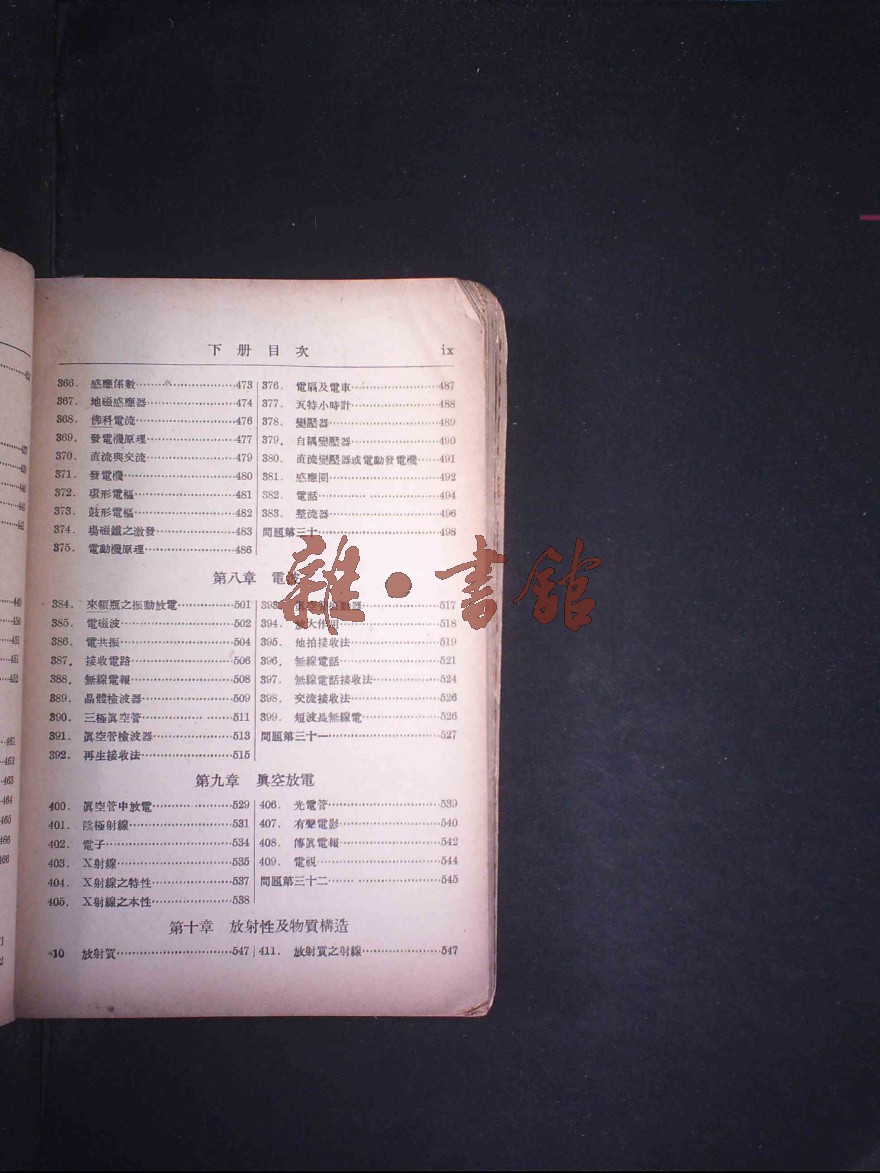 下冊目次 ix
366. 感應係數 473
367. 地磁感應器 474
368. 佛科電流 476
369. 發電機原理 477
370. 直流與交流 479
371. 發電機 480
372. 環形電樞 481
373. 鼓形電樞 482
374. 場磁鐵之激發 483
375. 電動機原理 486
376. 電扇及電車 487
377. 瓦特小時計 488
378. 變壓器 489
379. 自耦變壓器 490
380. 直流變壓器或電動發電機 491
381. 感應圈 492
382. 電話 494
383. 整流器 496
問題第三十 498
第八章 電波
384. 來頓瓶之振動放電 501
385. 電磁波 502
386. 電共振 504
387. 接收電路 506
388. 無線電報 508
389. 晶體檢波器 509
390. 三極眞空管 511
391. 眞空管檢波器 513
392. 再生接收法 515
393. 眞空管振動器 517
394. 放大作用 518
395. 他拍接收法 519
396. 無線電話 521
397. 無線電話接收法 524
398. 交流接收法 526
399. 短波長無線電 526
問題第三十一 527
第九章 眞空放電
400. 眞空管中放電 529
401. 陰極射線 531
402. 電子 534
403. X射線 535
404. X射線之特性 537
405. X射線之本性 538
406. 光電管 539
407. 有聲電影 540
408. 傳眞電報 542
409. 電視 544
問題第三十二 545
第十章 放射性及物質構造
410 放射質 547
411. 放射質之射線 547
雜·書館